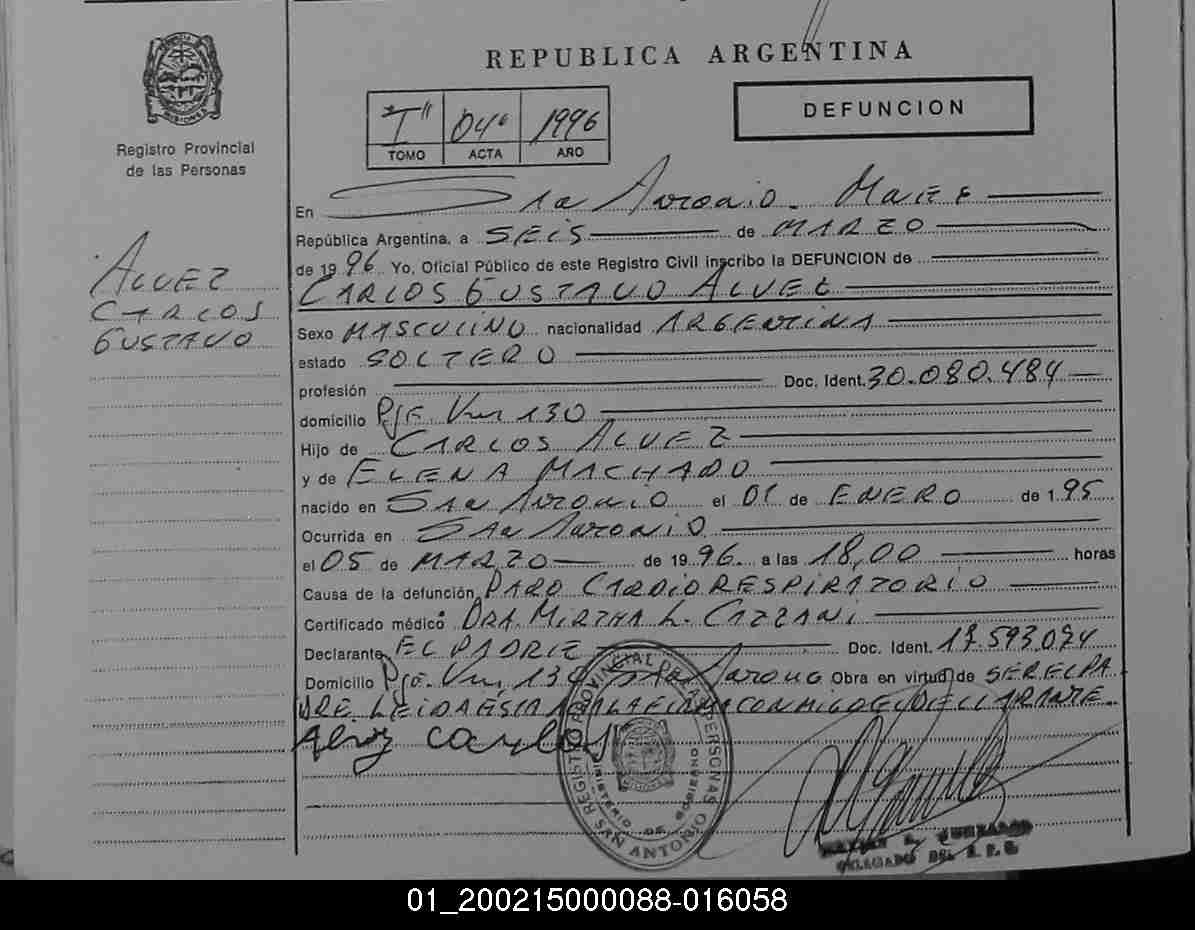 REPUBLICA ARGENTINA
MISIONES
Registro Provincial
de las Personas
"I" 04" 1996
TOMO ACTA AÑO
DEFUNCION
En San Antonio. Mnes
República Argentina, a SEIS de MARZO
de 1996 Yo, Oficial Público de este Registro Civil inscribo la DEFUNCION de
CARLOS GUSTAVO ALVEZ
ALVEZ
CARLOS
GUSTAVO
Sexo MASCULINO nacionalidad ARGENTINA
estado SOLTERO
profesión Doc. Ident. 30.080.484
domicilio Pje. Km 130
Hijo de CARLOS ALVEZ
y de ELENA MACHADO
nacido en SAN ANTONIO el 01 de ENERO de 1.95
Ocurrida en SAN ANTONIO
el 05 de MARZO de 1996. a las 18,00 horas
Causa de la defunción PARO CARDIORESPIRATORIO
Certificado médico DRA. MIRTHA L. CAZZANI
Declarante EL PADRE Doc. Ident. 17.593.074
Domicilio Pje. Km 130 San Antonio Obra en virtud de SER EL PA
DRE. LEIDA ESTA ACTA LA FIRMA CONMIGO EL DECLARANTE
Alvez Carlos
REGISTRO PROVINCIAL DE LAS PERSONAS
MINISTERIO DE GOBIERNO
SAN ANTONIO
DELEGADO DEL R. P. P.
01_200215000088-016058